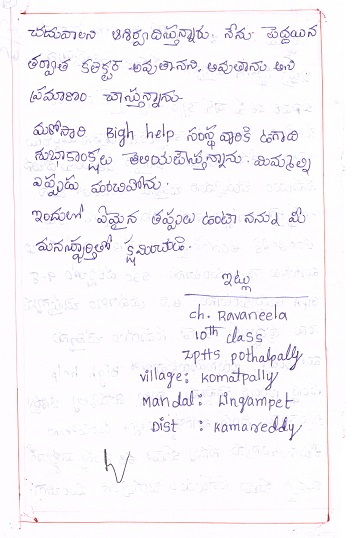 చదువాలని ఆశీర్వదిస్తున్నారు. నేను పెద్దయిన
తర్వాత కలెక్టర్ అవుతానని, అవుతాను అని
ప్రమాణం చేస్తున్నాను.
మరోసారి Bigh help సంస్థ వారికి ఉగాది
శుభాకాంక్షలు తెలియజేస్తున్నాను. మిమ్మల్ని
ఎప్పుడు మరిచిపోను.
ఇందులో ఏమైన తప్పులు ఉంటా నన్ను మీ
మనస్ఫూర్తితో క్షమించండి.
ఇట్లు
ch. Ravaneela
10th class
ZPHS pothalpally
village: komatpally
Mandal: Lingampet
Dist : kamareddy